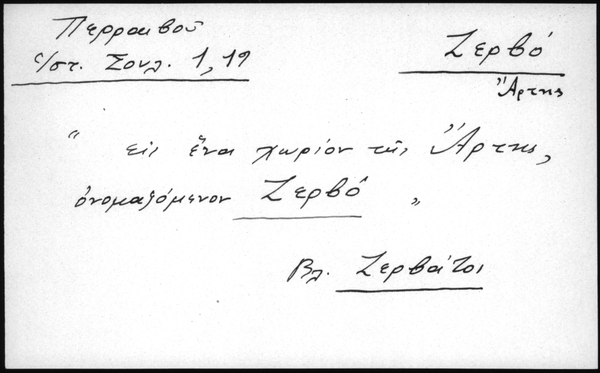 Περραιβού
Ἱστ. Σουλ. 1, 19
Ζερβό
Ἄρτης
" εἰς ἕνα χωρίον τῆς Ἄρτης,
ὀνομαζόμενον Ζερβό "
Βλ. Ζερβάτοι